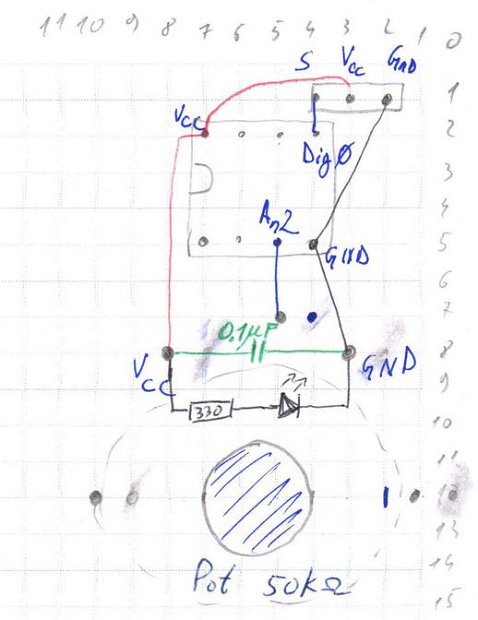 11 10 9 8 7 6 5 4 3 2 1 0
S Vcc GND
1
Vcc 2
Dig0
3
4
An2
5
GND
6
7
0.1µF
8
Vcc GND
9
330
10
11
12
13
14
Pot 50kΩ
15